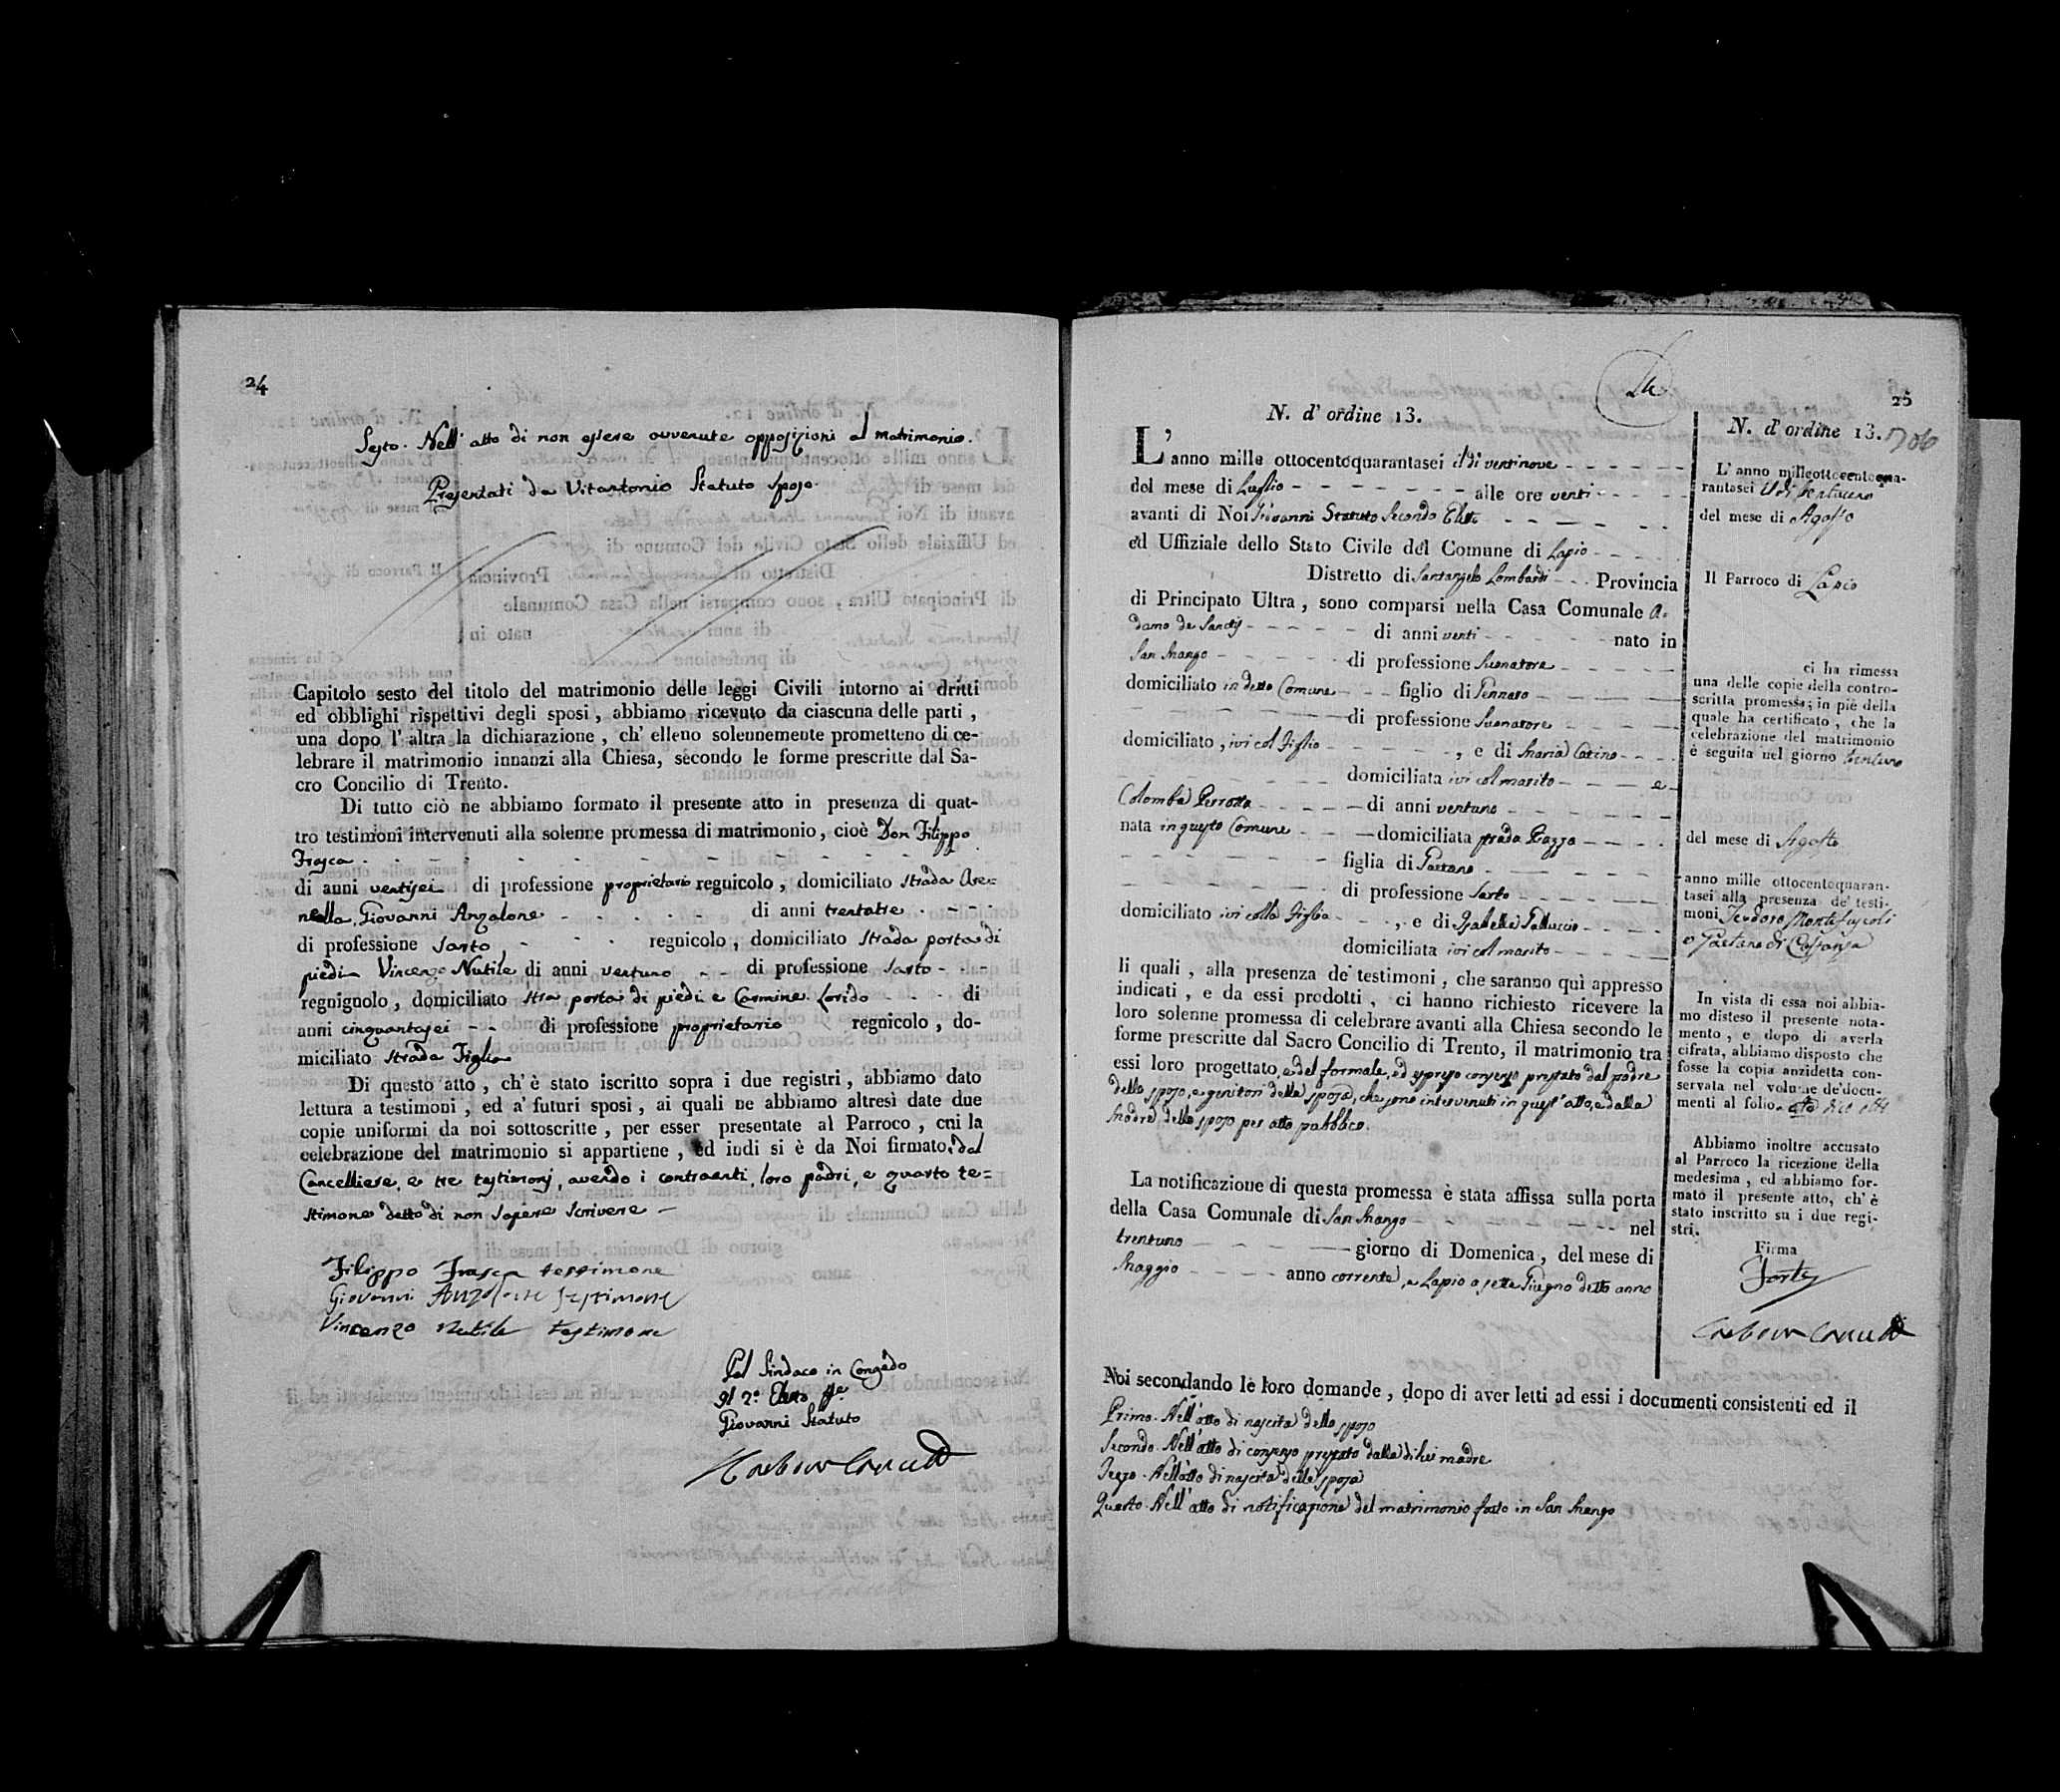 24
Sesto. Nell' atto di non essere avvenute opposizioni al matrimonio.
Presentati da Vitantonio Statuto sposo.
Capitolo sesto del titolo del matrimonio delle leggi Civili intorno ai dritti
ed obblighi rispettivi degli sposi, abbiamo ricevuto da ciascuna delle parti,
una dopo l'altra la dichiarazione, ch' elleno solennemente prometteno di ce-
lebrare il matrimonio innanzi alla Chiesa, secondo le forme prescritte dal Sa-
cro Concilio di Trento.
Di tutto ciò ne abbiamo formato il presente atto in presenza di quat-
tro testimoni intervenuti alla solenne promessa di matrimonio, cioè Don Filippo
Frasca
di anni ventisei di professione proprietario regnicolo, domiciliato strada Are-
nella, Giovanni Anzalone di anni trentatre
di professione Sarto regnicolo, domiciliato strada porta di
piedi Vincenzo Nutile di anni ventuno di professione Sarto
regnignolo, domiciliato stra porta di piedi e Carmine Lorido di
anni cinquantasei di professione proprietario regnicolo, do-
miciliato strada Figlia
Di questo atto, ch'è stato iscritto sopra i due registri, abbiamo dato
lettura a testimoni, ed a' futuri sposi, ai quali ne abbiamo altresì date due
copie uniformi da noi sottoscritte, per esser presentate al Parroco, cui la
celebrazione del matrimonio si appartiene, ed indi si è da Noi firmato, dal
Cancelliere, e tre testimonj, avendo i contraenti, loro padri, e quarto te-
stimone detto di non sapere scrivere
Filippo Frasca testimone
Giovanni Anzalone testimone
Vincenzo Nutile testimone
Pel Sindaco in Congedo
Il 2º Eletto
Giovanni Statuto
25
N. d' ordine 13.
L' anno mille ottocentoquarantasei il dì ventinove
del mese di Luglio alle ore venti
avanti di Noi Giovanni Statuto Secondo Eletto
ed Uffiziale dello Stato Civile del Comune di Lapio
Distretto di Santangelo Lombardi Provincia
di Principato Ultra, sono comparsi nella Casa Comunale A-
damo de Sanctis di anni venti nato in
San Mango di professione Suonatore
domiciliato in detto Comune figlio di Gennaro
di professione Suonatore
domiciliato, ivi col Figlio, e di Maria Catino
domiciliata ivi col marito e
Colomba Perrotta di anni ventuno
nata in questo Comune domiciliata prada Piazza
figlia di Gaetano
di professione Sarto
domiciliato ivi colla Figlia, e di Isabella Palluccio
domiciliata ivi col marito
li quali, alla presenza de' testimoni, che saranno quì appresso
indicati, e da essi prodotti, ci hanno richiesto ricevere la
loro solenne promessa di celebrare avanti alla Chiesa secondo le
forme prescritte dal Sacro Concilio di Trento, il matrimonio tra
essi loro progettato, e del formale, ed espresso consenso prestato dal padre
dello sposo, e genitori della sposa, che sono intervenuti in quest' atto, e dalla
Madre dello sposo per atto pubblico.
La notificazione di questa promessa è stata affissa sulla porta
della Casa Comunale di San Mango nel
trentuno giorno di Domenica, del mese di
Maggio anno corrente, e Lapio a sette Giugno detto anno
N. d' ordine 13.
L' anno milleottocentoqua-
rantasei il dì trentuno
del mese di Agosto
Il Parroco di Lapio
ci ha rimessa
una delle copie della contro-
scritta promessa; in piè della
quale ha certificato, che la
celebrazione del matrimonio
è seguita nel giorno trentuno
del mese di Agosto
anno mille ottocentoquaran-
tasei alla presenza de' testi-
moni Teodoro Montefuscoli
e Gaetano di
In vista di essa noi abbia-
mo disteso il presente nota-
mento, e dopo di averla
cifrata, abbiamo disposto che
fosse la copia anzidetta con-
servata nel volume de' docu-
menti al folio
Abbiamo inoltre accusato
al Parroco la ricezione della
medesima, ed abbiamo for-
mato il presente atto, ch'è
stato inscritto su i due regi-
stri.
Firma
Forte
Noi secondando le loro domande, dopo di aver letti ad essi i documenti consistenti ed il
Primo. Nell' atto di nascita dello sposo
Secondo. Nell' atto di consenso prestato dalla di lui madre
Terzo. Nell' atto di nascita della sposa
Quarto. Nell' atto di notificazione del matrimonio fatto in San Mango